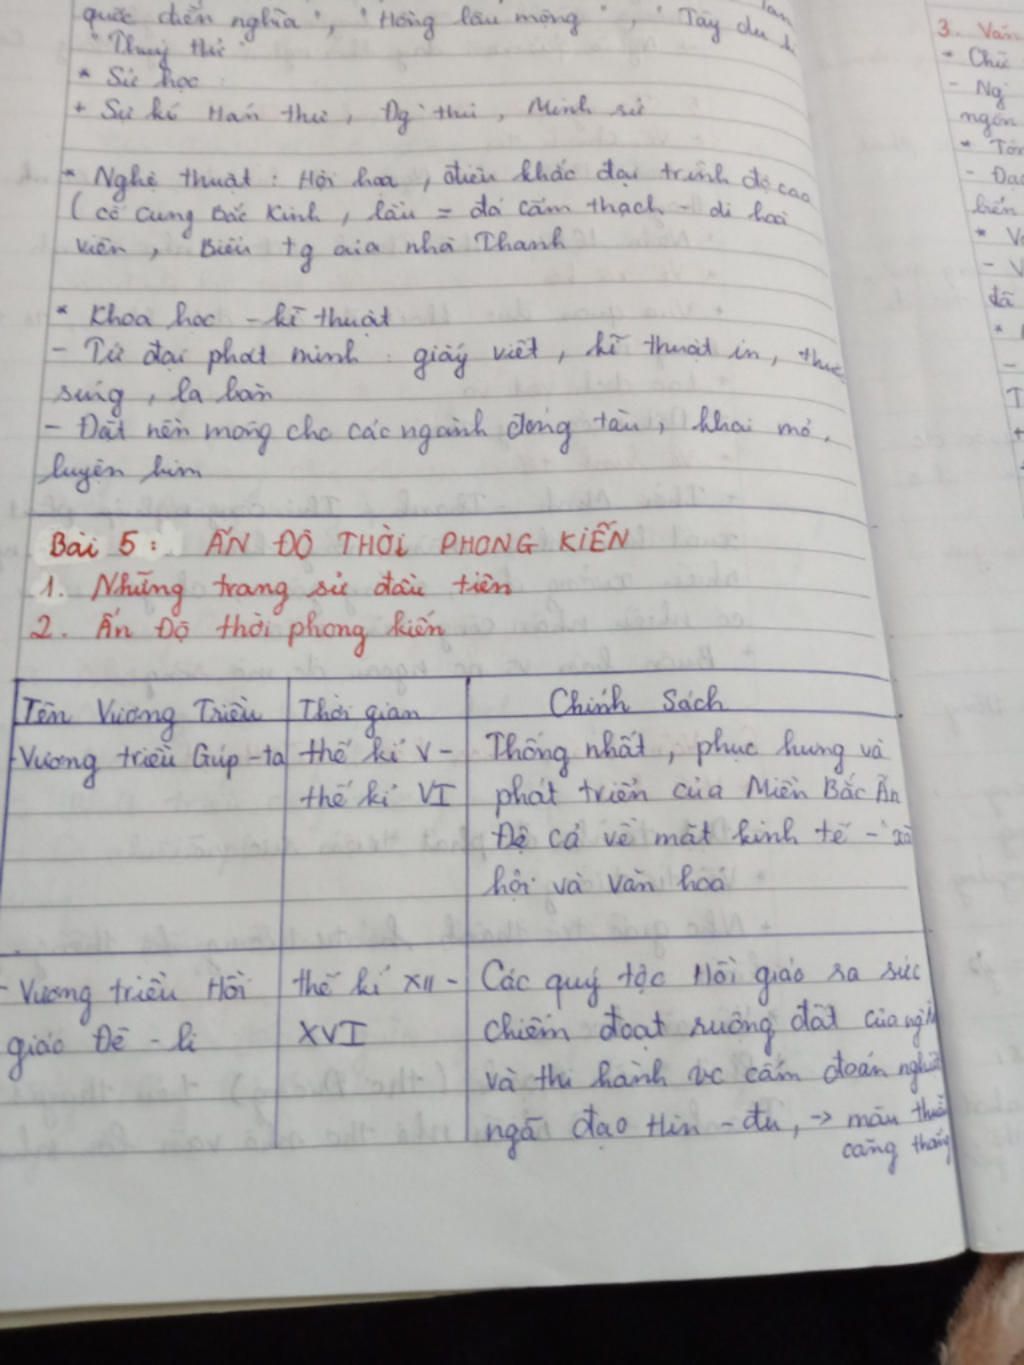 quốc diễn nghĩa", "Hồng lâu mộng", "Tây du kí
"Thuỷ thử"
* Sử học
+ Sử kí Hán thư, Đg thư, Minh sử
* Nghệ thuật: Hội hoạ, điêu khắc đạt trình độ cao
(cố cung Bắc Kinh, lầu = đá cẩm thạch - di hoà
viên, Biểu tg của nhà Thanh
* Khoa học - kĩ thuật
- Tứ đại phát minh: giấy viết, kĩ thuật in, thuốc
súng, la bàn
- Đặt nền móng cho các ngành đóng tàu, khai mỏ,
luyện kim
Bài 5: ẤN ĐỘ THỜI PHONG KIẾN
1. Những trang sử đầu tiên
2. Ấn Độ thời phong kiến
Tên Vương Triều
Thời gian
Chính Sách
- Vương triều Gúp-ta
thế kỉ V -
thế kỉ VI
Thống nhất, phục hưng và
phát triển của Miền Bắc Ấn
Độ cả về mặt kinh tế - xã
hội và văn hoá
- Vương triều Hồi
giáo Đê - li
thế kỉ XII -
XVI
Các quý tộc Hồi giáo ra sức
chiếm đoạt ruộng đất của
và thi hành vc cấm đoán nghiệt
ngã đạo Hin - đu, -> mâu thuẫn
căng thẳng
3. Văn
* Chữ
- Ng
ngôn
* Tôn
- Đạo
biến
- V
đã